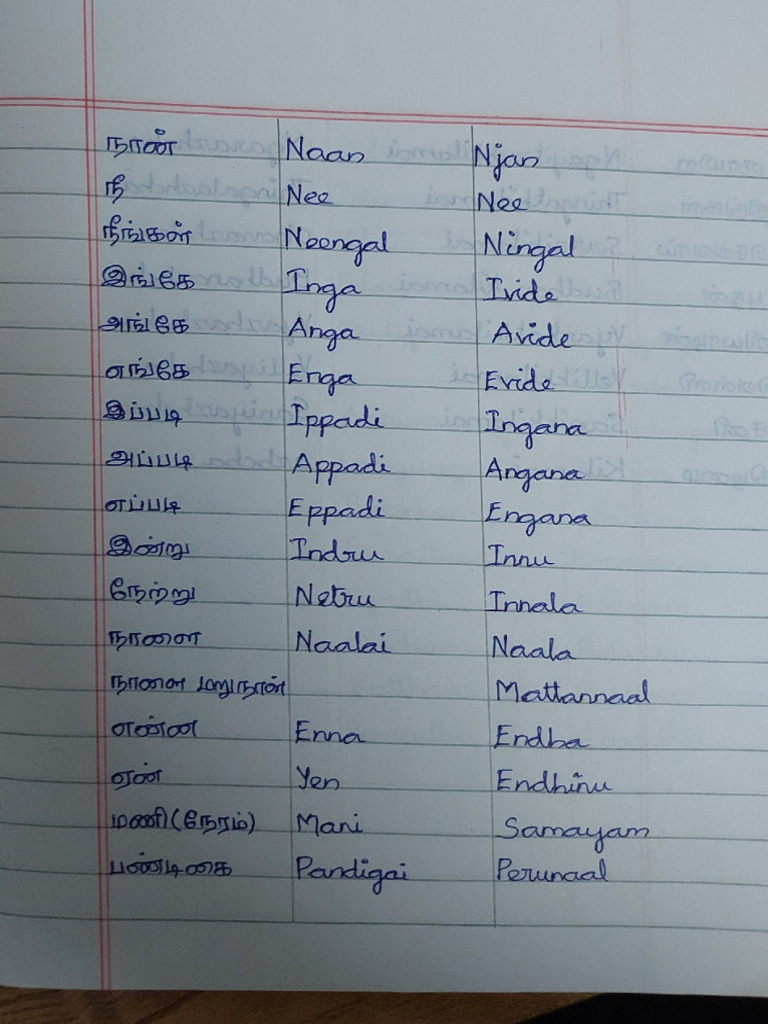 நான் Naan Njan
நீ Nee Nee
நீங்கள் Neengal Ningal
இங்கே Inga Ivide
அங்கே Anga Avide
எங்கே Enga Evide
இப்படி Ippadi Ingana
அப்படி Appadi Angana
எப்படி Eppadi Engana
இன்று Indru Innu
நேற்று Netru Innala
நாளை Naalai Naala
நாளை மறுநாள் Mattannaal
என்ன Enna Endha
ஏன் Yen Endhinu
மணி(நேரம்) Mani Samayam
பண்டிகை Pandigai Perunaal